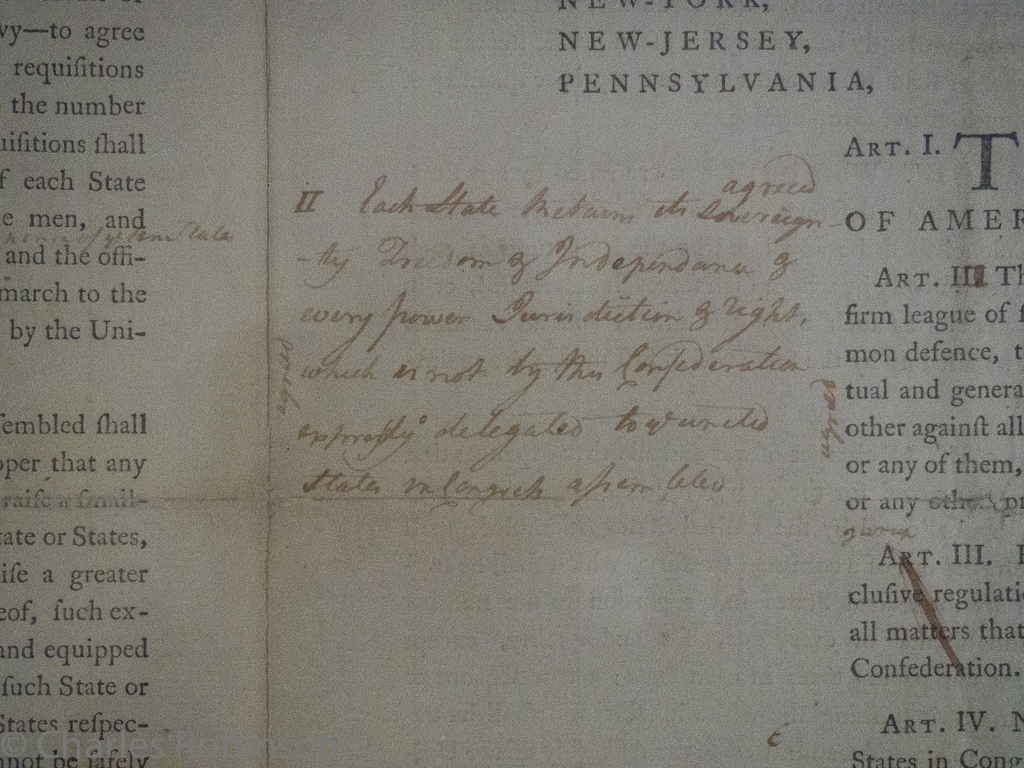 vy—to agree
requiſitions
the number
uiſitions ſhall
f each State
e men, and
and the offi-
march to the
by the Uni-
ſembled ſhall
oper that any
raiſe a ſmall-
tate or States,
iſe a greater
eof, ſuch ex-
and equipped
ſuch State or
States reſpec-
nnot be ſafely
NEW-YORK,
NEW-JERSEY,
PENNSYLVANIA,
agreed
II Each State Retains its Sovereign
-ty Freedom & Independance &
every power Jurisdiction & right,
which is not by this Confederation
expressly delegated to ye united
States in Congress assembled
agreed
agreed
ART. I. T
OF AMER
ART. III Th
firm league of f
mon defence, t
tual and genera
other againſt all
or any of them,
or any other pr
ART. III. 
cluſive regulati
all matters that
Confederation.
c
ART. IV. N
States in Cong
© Charles Robinson